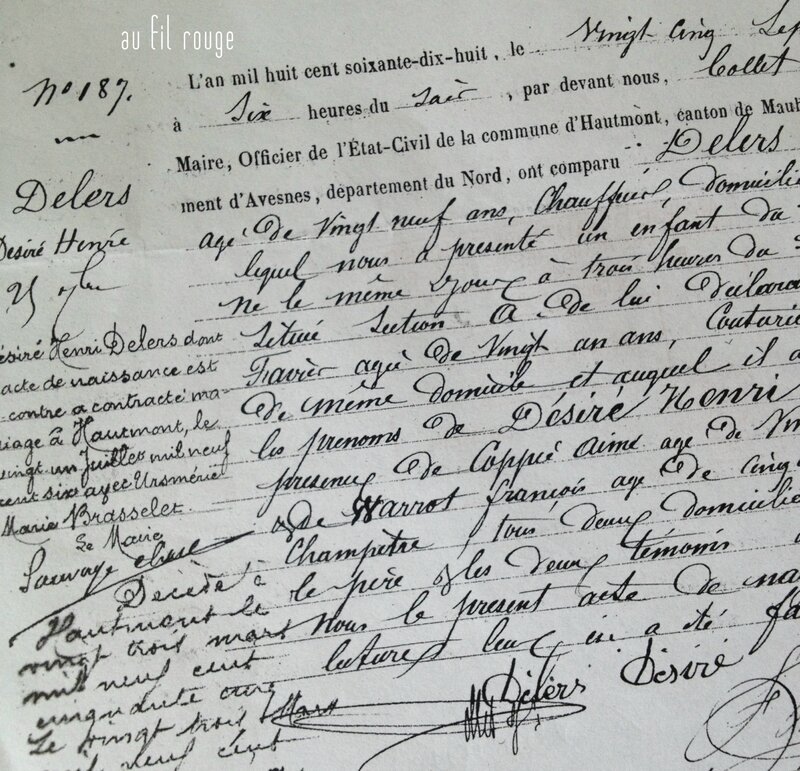 au fil rouge
L'an mil huit cent soixante-dix-huit, le Vingt Cinq Sep
à Six heures du Soir, par devant nous, Collet
Maire, Officier de l'État-Civil de la commune d'Hautmont, canton de Maub
ment d'Avesnes, département du Nord, ont comparu Delers
agé de Vingt neuf ans, Chauffeur, domicilié
lequel nous a presenté un enfant du
né le même jour à trois heures du
Situé Section A de lui déclara
agée de Vingt un ans, Couturiè
de même domicile et auquel il a
les prenoms de Désiré Henri
presence de Coppié Aimé agé de Vin
& de Warrot françois age de Cinq
Champètre, tous deux domicilié
le père & les deux témoins
Nous le present acte de na
lecture leur en a été fa
Delers Désiré
No 187.
Delers
Désiré Henri
25 7bre
Désiré Henri Delers dont
acte de naissance est
contre a contracté ma-
riage à Hautmont, le
vingt un Juillet mil neuf
cent six avec Ursmérie
Marie Brasselet.
Le Maire
Décédé à
Hautmont le
vingt trois mars
mil neuf cent
cinquante
Le vingt trois Mars
mil neuf cent